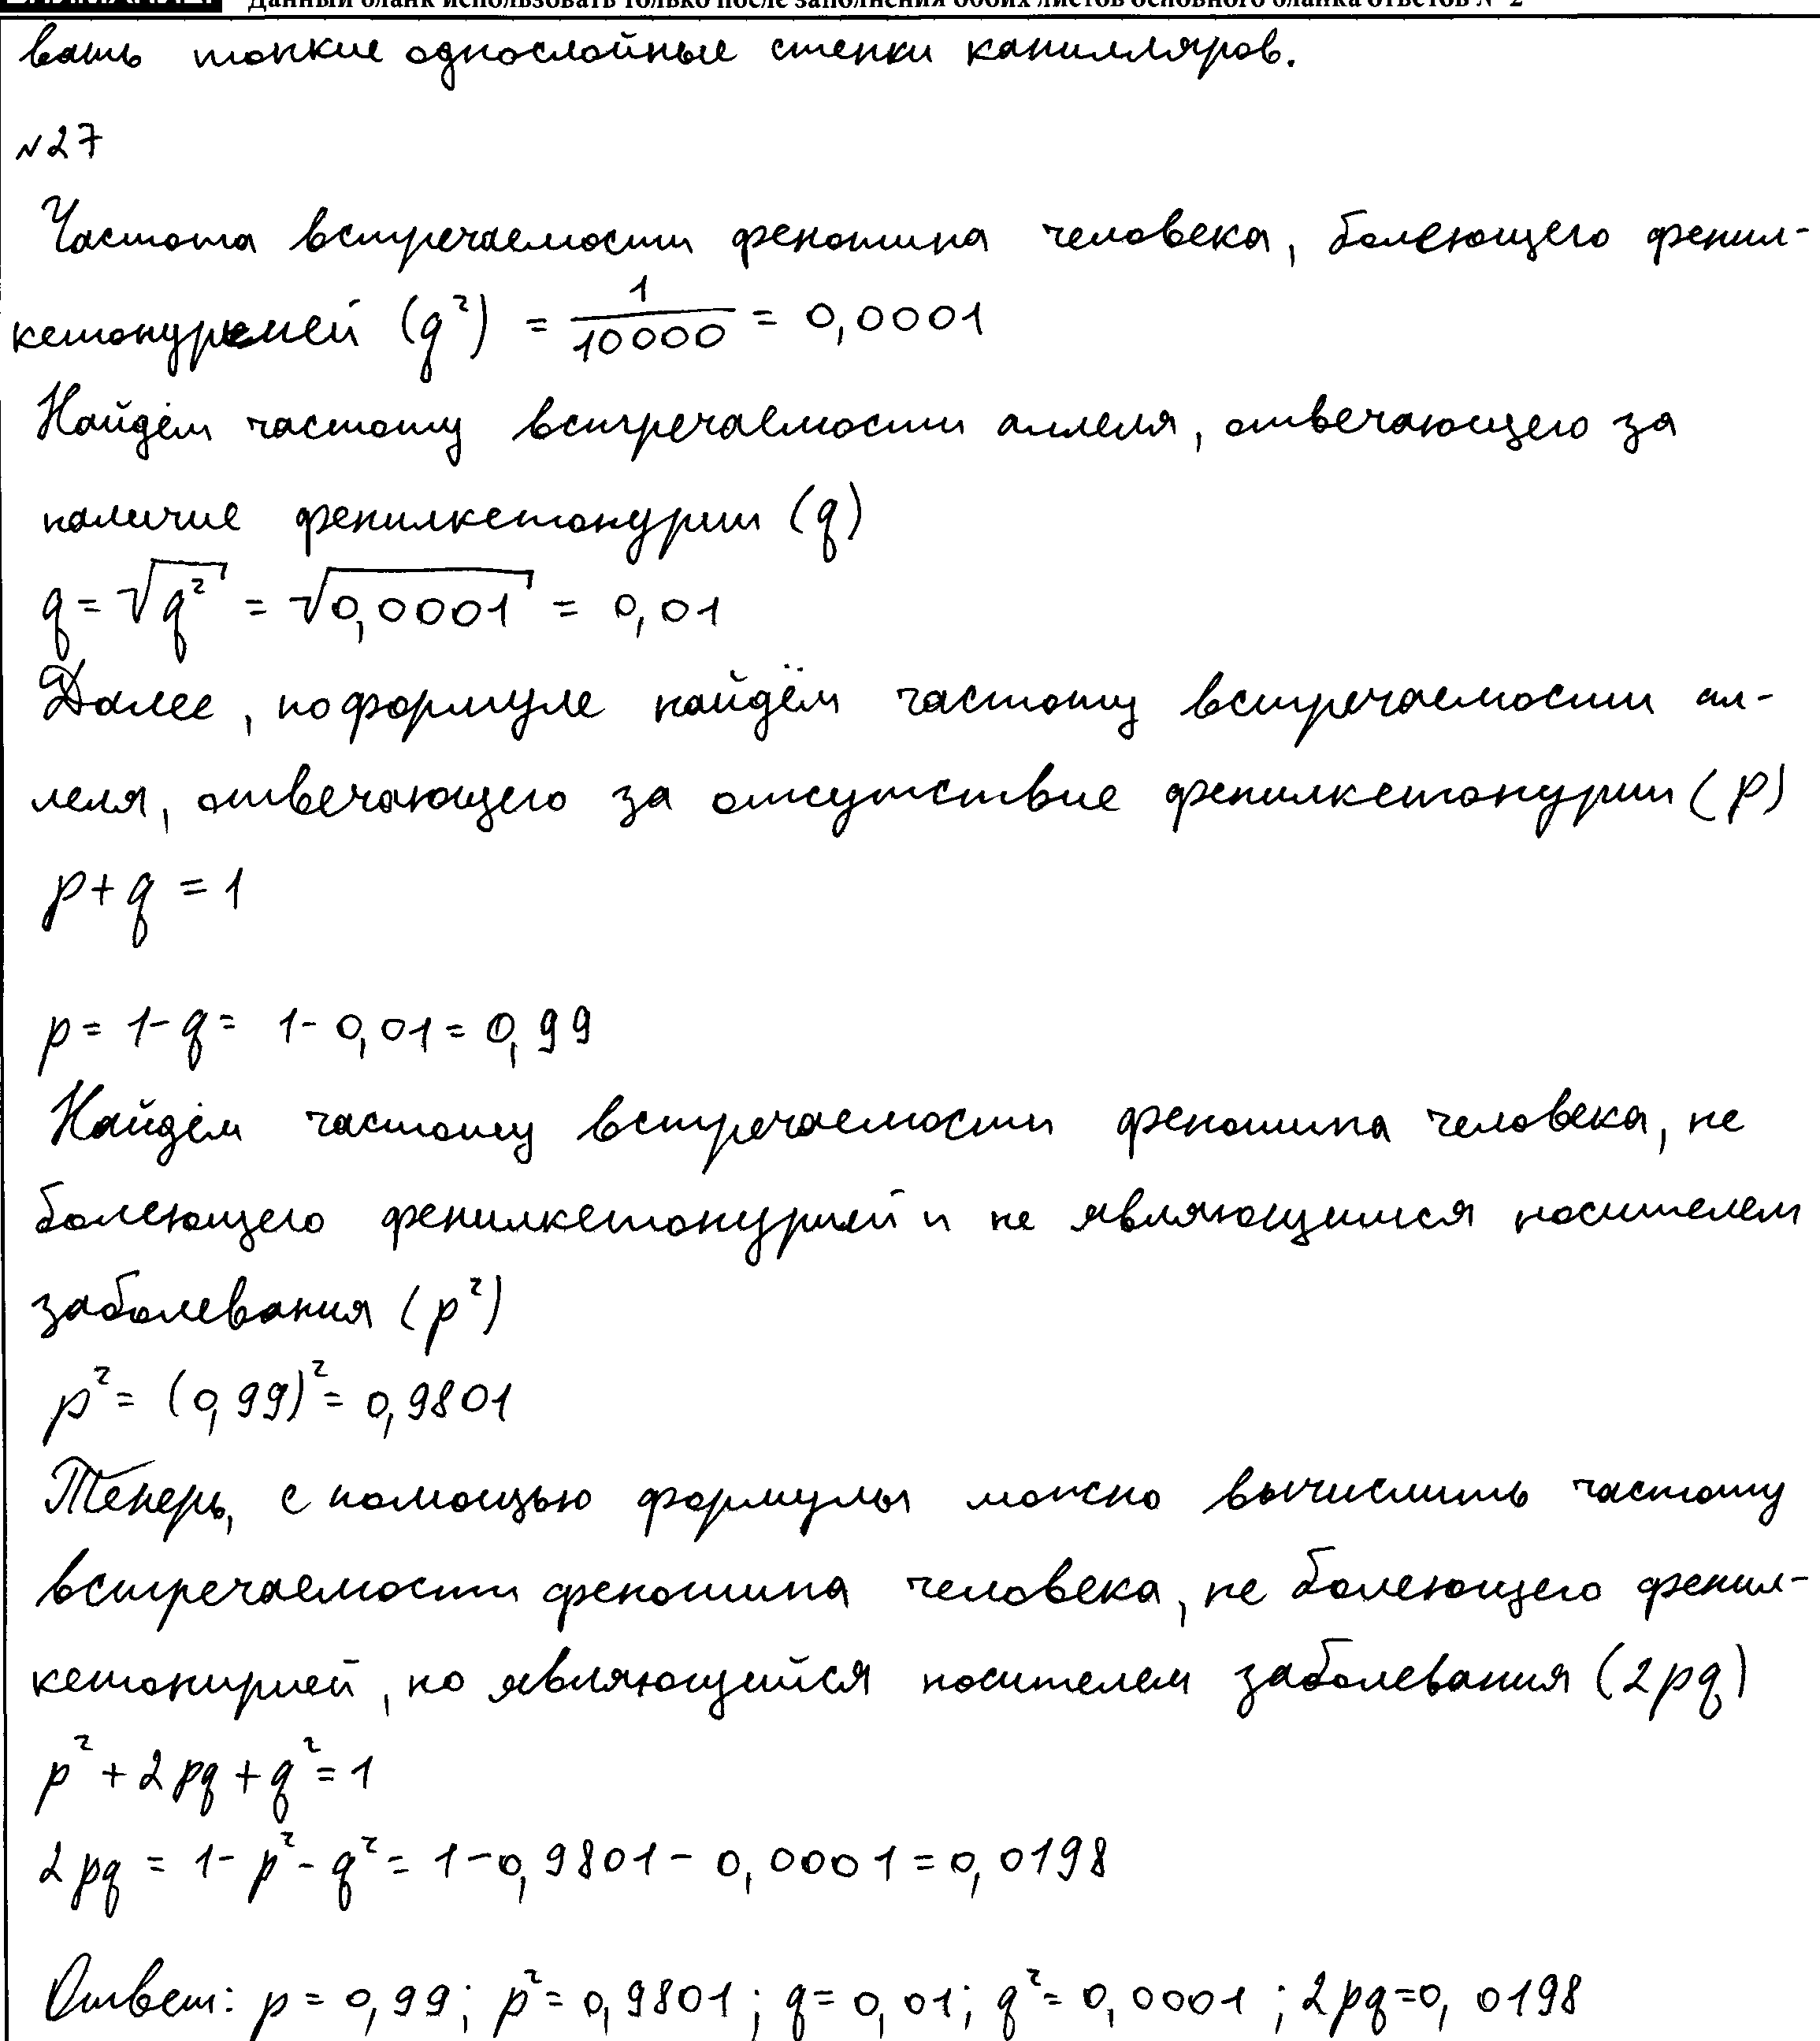 Данный бланк использовать только после заполнения обоих листов основного бланка ответов № 2
вать тонкие однослойные стенки капилляров.
№27
Частота встречаемости фенотипа человека, болеющего фенил-
кетонурией (q²) = 1/10000 = 0,0001
Найдём частоту встречаемости аллеля, отвечающего за
наличие фенилкетонурии (q)
q = √q² = √0,0001 = 0,01
Далее, по формуле найдём частоту встречаемости ал-
леля, отвечающего за отсутствие фенилкетонурии (p)
p + q = 1
p = 1 - q = 1 - 0,01 = 0,99
Найдём частоту встречаемости фенотипа человека, не
болеющего фенилкетонурией и не являющимся носителем
заболевания (p²)
p² = (0,99)² = 0,9801
Теперь, с помощью формулы можно вычислить частоту
встречаемости фенотипа человека, не болеющего фенил-
кетонирией, но являющийся носителем заболевания (2pq)
p² + 2pq + q² = 1
2pq = 1 - p² - q² = 1 - 0,9801 - 0,0001 = 0,0198
Ответ: p = 0,99; p² = 0,9801; q = 0,01; q² = 0,0001; 2pq = 0,0198